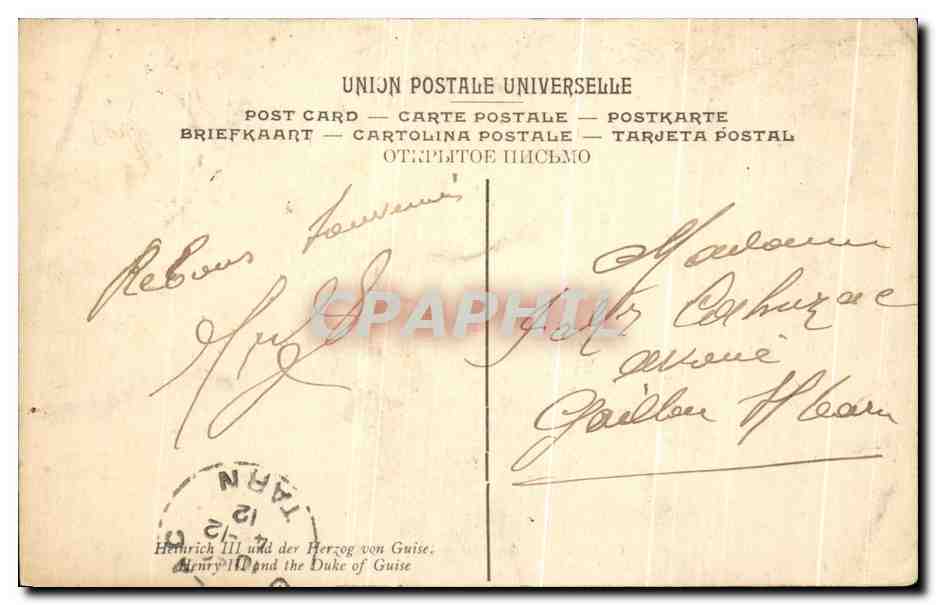 UNION POSTALE UNIVERSELLE
POST CARD — CARTE POSTALE — POSTKARTE
BRIEFKAART — CARTOLINA POSTALE — TARJETA POSTAL
ОТКРЫТОЕ ПИСЬМО
souvenirs
Madame
Cahuzac
avoué
Gaillac Tarn
CPAPHIL
TARN
12
-12
4
Heinrich III und der Herzog von Guise.
Henry III and the Duke of Guise